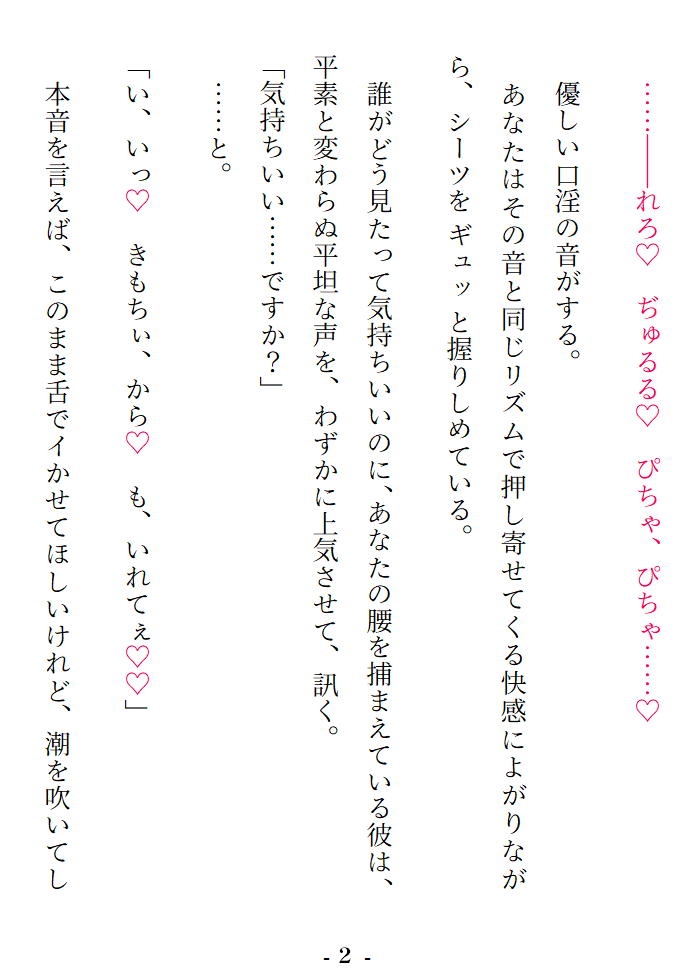 ……――れろ♡　ぢゅるる♡　ぴちゃ、ぴちゃ……♡
優しい口淫の音がする。
あなたはその音と同じリズムで押し寄せてくる快感によがりなが
ら、シーツをギュッと握りしめている。
誰がどう見たって気持ちいいのに、あなたの腰を捕まえている彼は、
平素と変わらぬ平坦な声を、わずかに上気させて、訊く。
「気持ちいい……ですか？」
……と。
「い、いっ♡　きもちぃ、から♡　も、いれてぇ♡♡」
本音を言えば、このまま舌でイかせてほしいけれど、潮を吹いてし
- 2 -